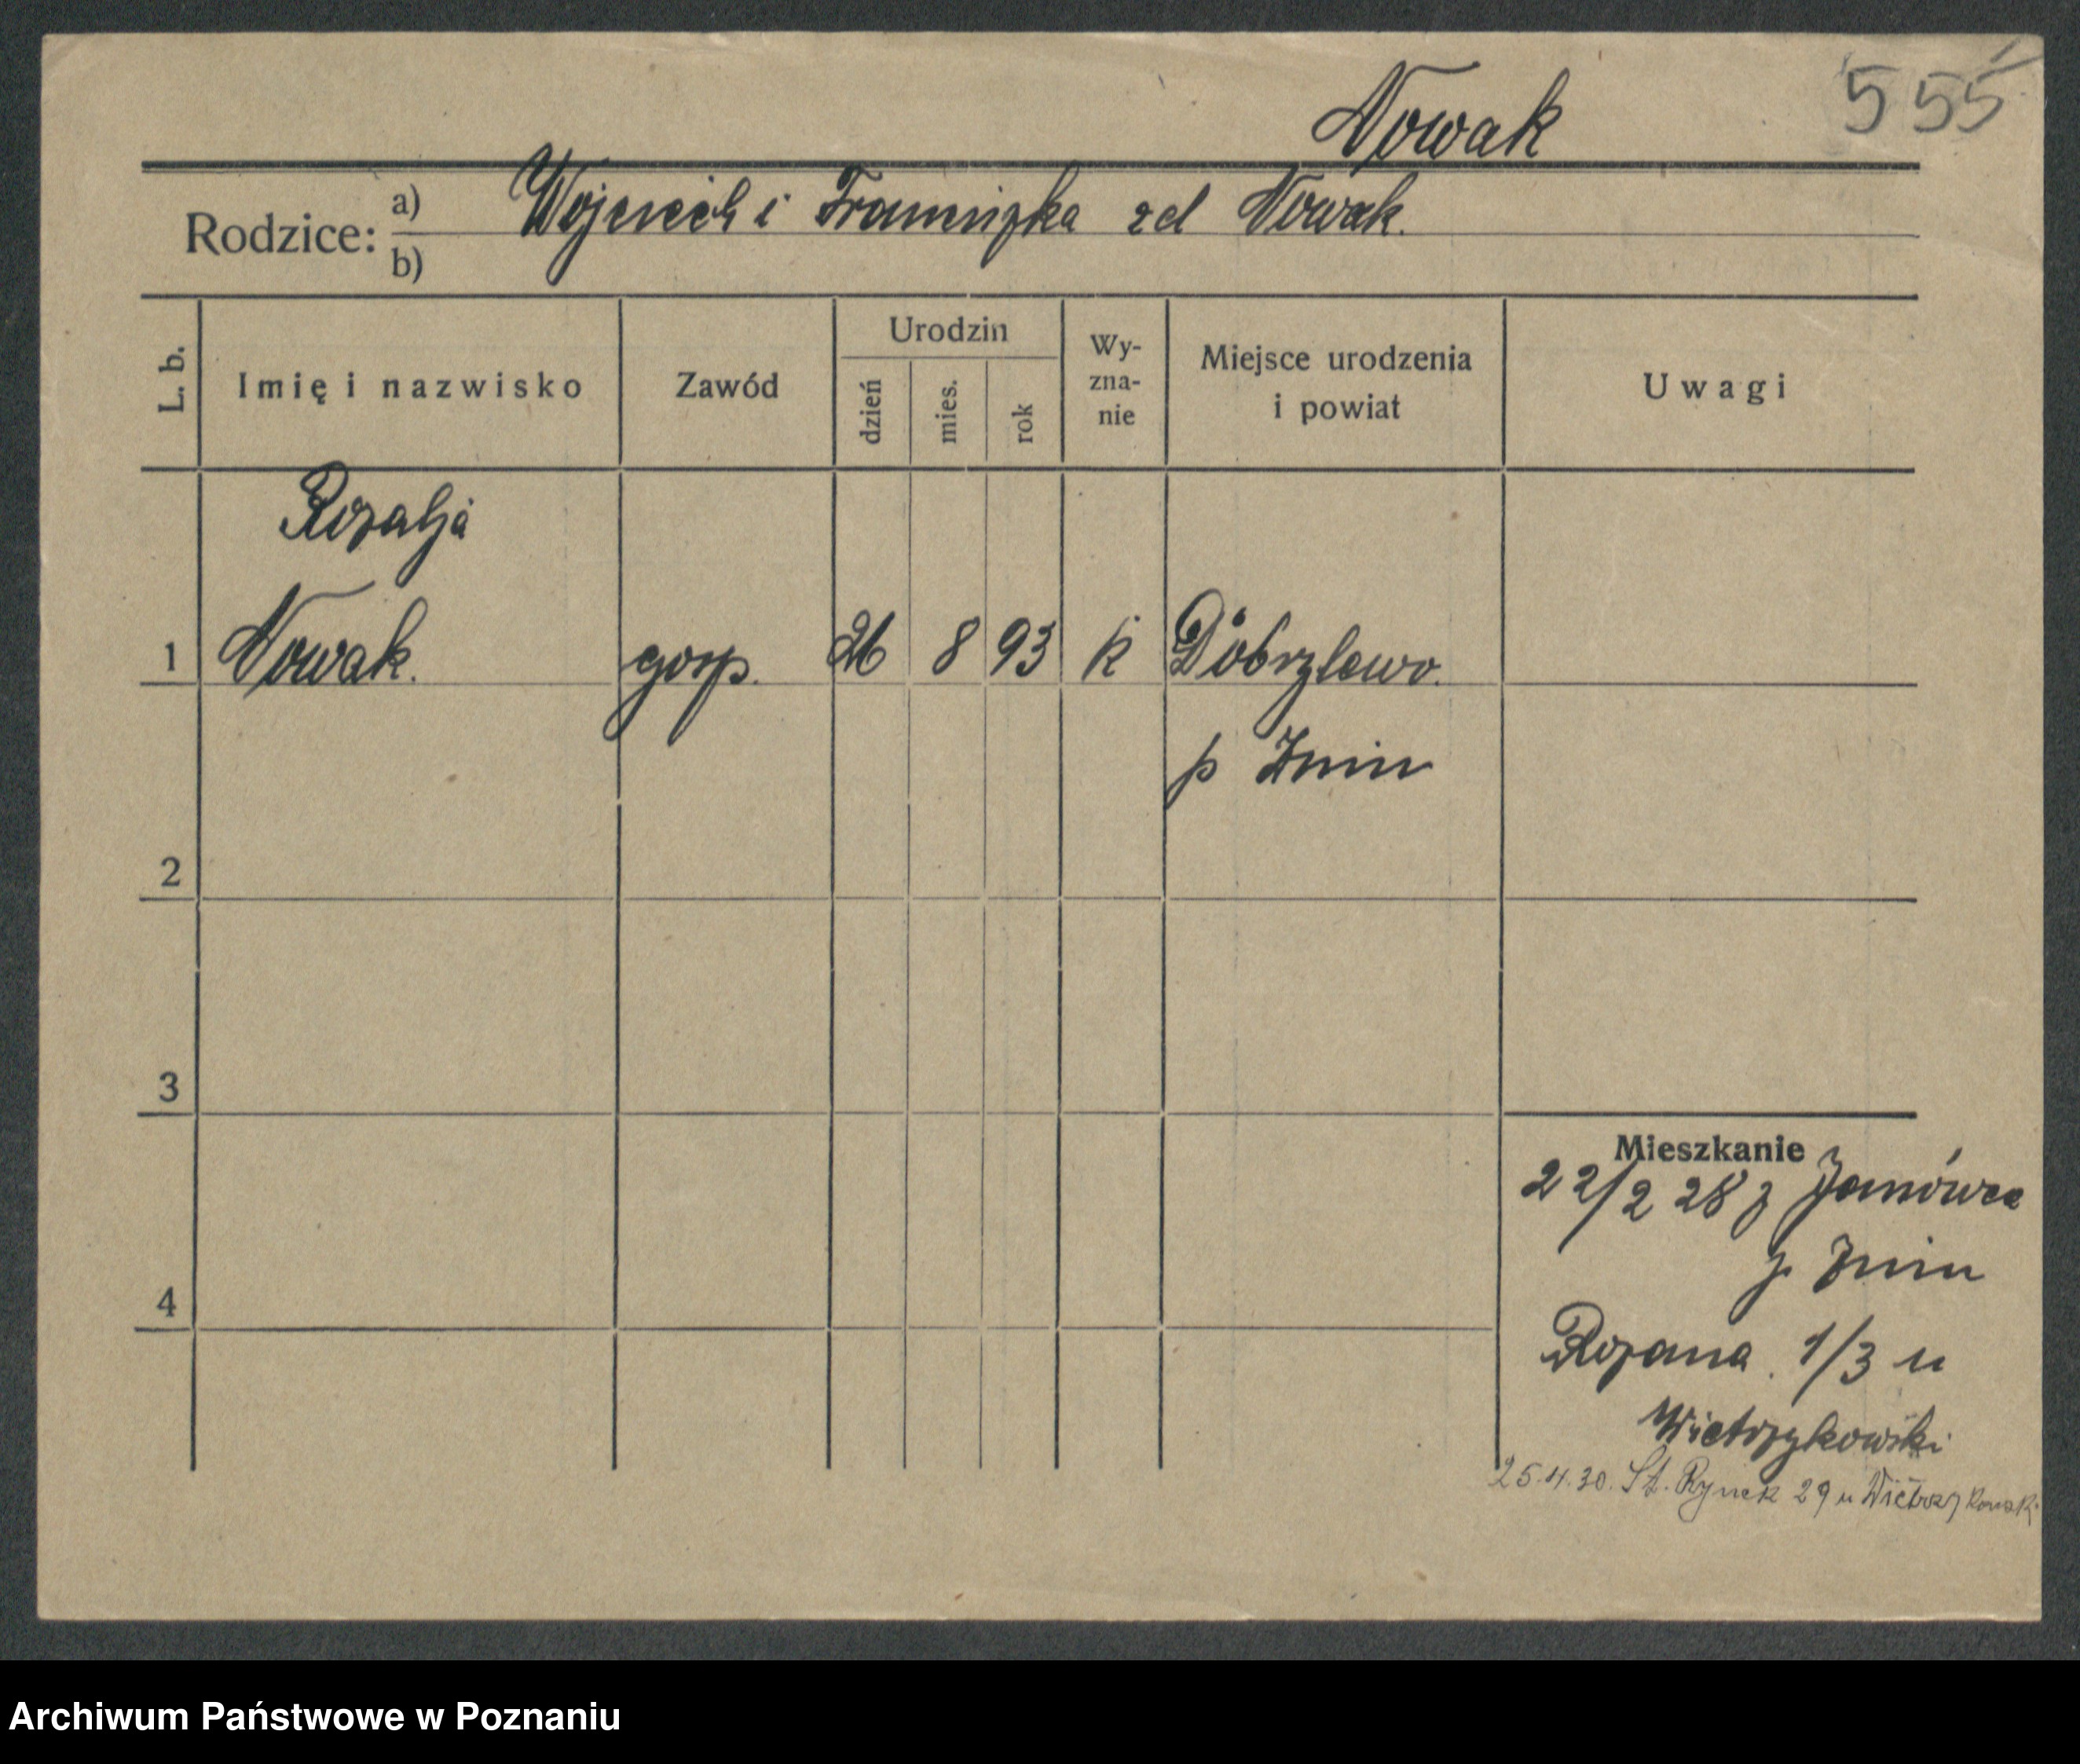 555
Nowak
Rodzice: a) Wojciech i Franciszka zd Nowak.
b)
L. b.
Imię i nazwisko
Zawód
Urodzin
dzień
mies.
rok
Wy-
zna-
nie
Miejsce urodzenia
i powiat
Uwagi
Rozalja
1 Nowak. gosp. 26 8 93 k Dobrylewo.
p Żnin
2
3
4
Mieszkanie
22/2 28 z Janówca
p. Żnin
Różana. 1/3 u
Wietrzykowski
25.4.30. St. Rynek 29 u Wietrzykowsk.
Archiwum Państwowe w Poznaniu